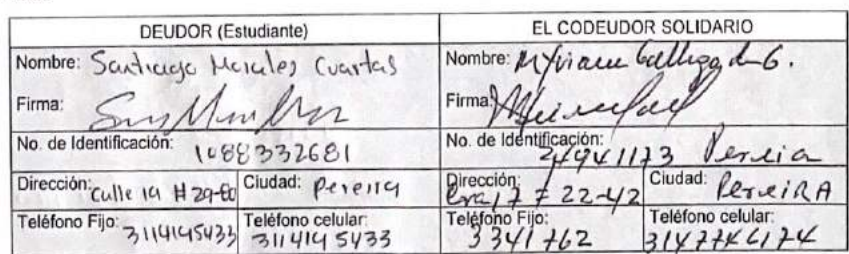 DEUDOR (Estudiante) EL CODEUDOR SOLIDARIO
Nombre: Santiago Morales Cuartas Nombre: Myriam Gallego de G.
Firma: Firma:
No. de Identificación: 1088332681 No. de Identificación: 24941173 Pereira
Dirección: Calle 19 # 29-80 Ciudad: Pereira Dirección: Cra 17 # 22-42 Ciudad: PereiRA
Teléfono Fijo: 3114145433 Teléfono celular: 3114145433 Teléfono Fijo: 3341762 Teléfono celular: